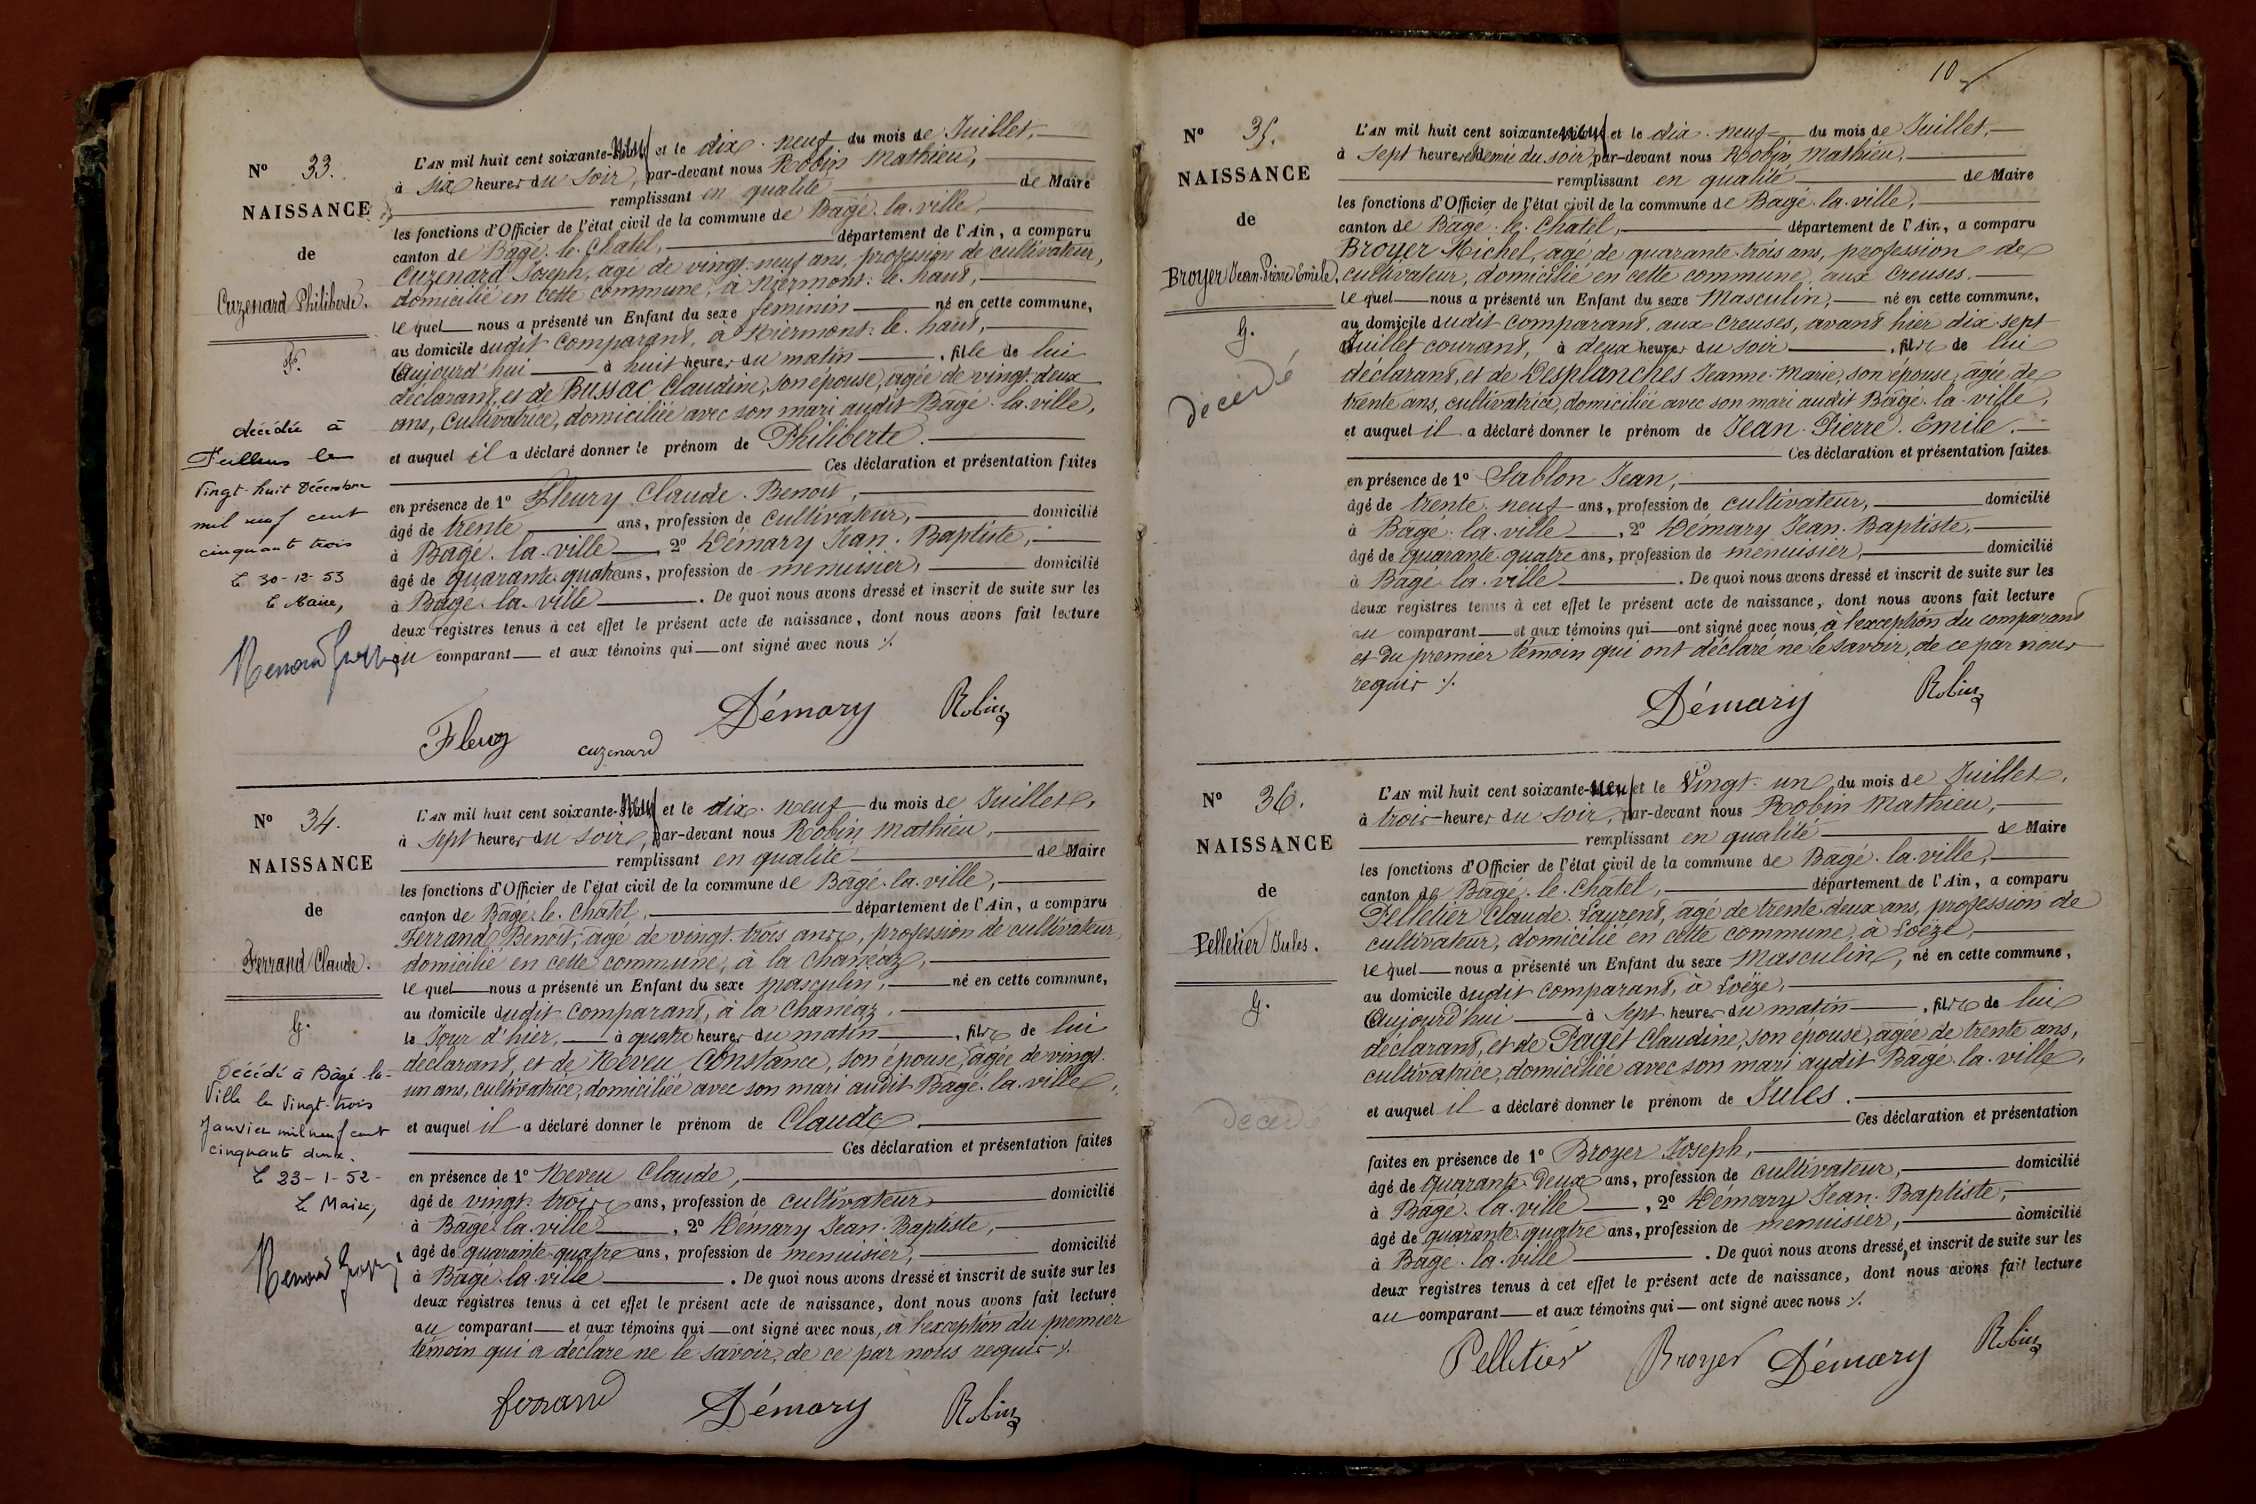 N° 33.
NAISSANCE
de
Cuzenard Philiberte.
F.
décédée à
Feillens le
vingt-huit Décembre
mil neuf cent
cinquante trois
le 30-12-53
le Maire,
L'AN mil huit cent soixante-neuf et le dix-neuf du mois de Juillet,
à six heures du soir, par-devant nous Robin Mathieu,
remplissant en qualité de Maire
les fonctions d'Officier de l'état civil de la commune de Bâgé-la-ville,
canton de Bâgé-le-Chatel, département de l'Ain, a comparu
Cuzenard Joseph, agé de vingt-neuf ans, profession de cultivateur,
domicilié en cette commune, à Niermont-le-haut,
lequel nous a présenté un Enfant du sexe féminin né en cette commune,
au domicile dudit comparant, à Niermont-le-haut,
Aujourd'hui à huit heures du matin, fille de lui
déclarant, et de Bussac Claudine, son épouse, agée de vingt-deux
ans, cultivatrice, domiciliée avec son mari audit Bâgé-la-ville,
et auquel il a déclaré donner le prénom de Philiberte.
Ces déclaration et présentation faites
en présence de 1° Fleury Claude-Benoit,
âgé de trente ans, profession de cultivateur, domicilié
à Bâgé-la-ville, 2° Démary Jean-Baptiste,
âgé de quarante-quatre ans, profession de menuisier, domicilié
à Bâgé-la-ville. De quoi nous avons dressé et inscrit de suite sur les
deux registres tenus à cet effet le présent acte de naissance, dont nous avons fait lecture
au comparant et aux témoins qui ont signé avec nous ./.
Fleury cuzenard Démary Robin
N° 34.
NAISSANCE
de
Ferrand Claude.
G.
Décédé à Bâgé-la-
Ville le vingt-trois
Janvier mil neuf cent
cinquante deux.
le 23-1-52-
le Maire,
L'AN mil huit cent soixante-neuf et le dix-neuf du mois de Juillet,
à sept heures du soir, par-devant nous Robin Mathieu,
remplissant en qualité de Maire
les fonctions d'Officier de l'état civil de la commune de Bâgé-la-ville,
canton de Bâgé-le-Chatel, département de l'Ain, a comparu
Ferrand Benoit, agé de vingt-trois ans, profession de cultivateur,
domicilié en cette commune, à la Chanéaz,
lequel nous a présenté un Enfant du sexe masculin, né en cette commune,
au domicile dudit comparant, à la Chanéaz,
le Jour d'hier, à quatre heures du matin, fils de lui
déclarant, et de Neveu Constance, son épouse, agée de vingt-
un ans, cultivatrice, domiciliée avec son mari audit Bâgé-la-ville,
et auquel il a déclaré donner le prénom de Claude.
Ces déclaration et présentation faites
en présence de 1° Neveu Claude,
âgé de vingt-trois ans, profession de cultivateur domicilié
à Bâgé-la-ville, 2° Démary Jean-Baptiste,
âgé de quarante-quatre ans, profession de menuisier, domicilié
à Bâgé-la-ville. De quoi nous avons dressé et inscrit de suite sur les
deux registres tenus à cet effet le présent acte de naissance, dont nous avons fait lecture
au comparant et aux témoins qui ont signé avec nous, à l'exception du premier
témoin qui a déclaré ne le savoir, de ce par nous requis ./.
ferrand Démary Robin
10
N° 35.
NAISSANCE
de
Broyer Jean-Pierre-Emile.
G.
Décédé
L'AN mil huit cent soixante-neuf et le dix-neuf du mois de Juillet,
à sept heures et demie du soir, par-devant nous Robin Mathieu,
remplissant en qualité de Maire
les fonctions d'Officier de l'état civil de la commune de Bâgé-la-ville,
canton de Bâgé-le-Chatel, département de l'Ain, a comparu
Broyer Michel, agé de quarante-trois ans, profession de
cultivateur, domicilié en cette commune, aux Creuses.
lequel nous a présenté un Enfant du sexe Masculin, né en cette commune,
au domicile dudit comparant, aux Creuses, avant hier dix-sept
Juillet courant, à deux heures du soir, fils de lui
déclarant, et de Desplanches Jeanne-Marie, son épouse, agée de
trente ans, cultivatrice, domiciliée avec son mari audit Bâgé-la-ville,
et auquel il a déclaré donner le prénom de Jean-Pierre-Emile.
Ces déclaration et présentation faites
en présence de 1° Sablon Jean,
âgé de trente-neuf ans, profession de cultivateur, domicilié
à Bâgé-la-ville, 2° Démary Jean-Baptiste,
âgé de quarante-quatre ans, profession de menuisier, domicilié
à Bâgé-la-ville. De quoi nous avons dressé et inscrit de suite sur les
deux registres tenus à cet effet le présent acte de naissance, dont nous avons fait lecture
au comparant et aux témoins qui ont signé avec nous, à l'exception du comparant
et du premier témoin qui ont déclaré ne le savoir, de ce par nous
requis ./.
Démary Robin
N° 36.
NAISSANCE
de
Pelletier Jules.
G.
Décédé
L'AN mil huit cent soixante-neuf et le Vingt-un du mois de Juillet,
à trois heures du soir, par-devant nous Robin Mathieu,
remplissant en qualité de Maire
les fonctions d'Officier de l'état civil de la commune de Bâgé-la-ville,
canton de Bâgé-le-Chatel, département de l'Ain, a comparu
Pelletier Claude-Laurent, agé de trente-deux ans, profession de
cultivateur, domicilié en cette commune, à Loëze,
lequel nous a présenté un Enfant du sexe Masculin, né en cette commune,
au domicile dudit comparant, à Loëze,
Aujourd'hui à sept heures du matin, fils de lui
déclarant, et de Paget Claudine, son épouse, agée de trente ans,
cultivatrice, domiciliée avec son mari audit Bâgé-la-ville,
et auquel il a déclaré donner le prénom de Jules.
Ces déclaration et présentation
faites en présence de 1° Broyer Joseph,
âgé de quarante-deux ans, profession de cultivateur, domicilié
à Bâgé-la-ville, 2° Démary Jean-Baptiste,
âgé de quarante-quatre ans, profession de menuisier, domicilié
à Bâgé-la-ville. De quoi nous avons dressé et inscrit de suite sur les
deux registres tenus à cet effet le présent acte de naissance, dont nous avons fait lecture
au comparant et aux témoins qui ont signé avec nous ./.
Pelletier Broyer Démary Robin